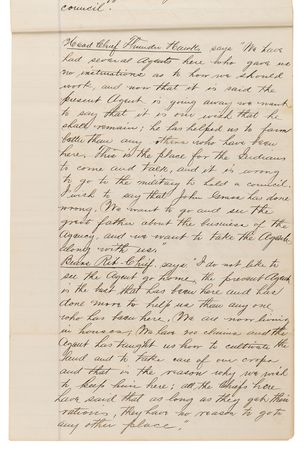 council."
Head Chief Thunder Hawk, says "We have
had several Agents here who gave us
no instructions as to how we should
work, and now that it is said the
present Agent is going away we want
to say that it is our wish that he
shall remain; he has helped us to farm
better than any others who have been
here. This is the place for the Indians
to come and talk, and it is wrong
to go to the military to hold a council.
I wish to say that John Grass has done
wrong. We want to go and see the
great father about the business of the
Agency and we want to take the Agent
along with us."
Chief, says, "I do not like to
see the Agent go home, the present Agent
is the best that has been here and has
done more to help us than any one
who has been here. We are now living
in houses, We have no chains and the
Agent has taught us how to cultivate the
land and to take care of our crops
and that is the reason why we wish
to keep him here; all the Chiefs here
have said that as long as they get their
rations, they have no reason to go to
any other place."